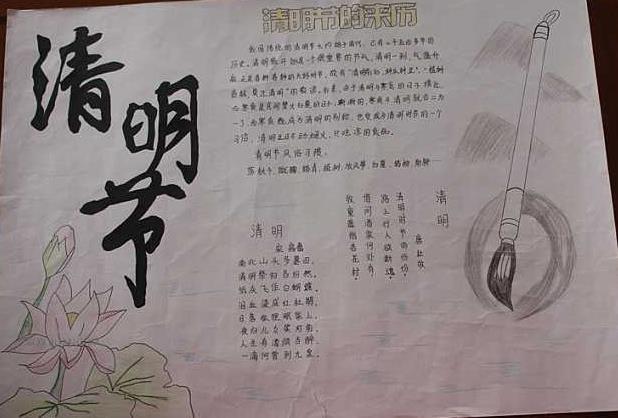 清明节
清明节的来历
我国传统的清明节大约始于周代，已有二千五百多年的
历史。清明最开始是一个很重要的节气，清明一到，气温升
高，正是春耕春种的大好时节，故有“清明前后，种瓜种豆”。“植树
造林，莫过清明”的农谚。后来，由于清明与寒食的日子接近，
而寒食是民间禁火扫墓的日子，渐渐的，寒食与清明就合二为
一了，而寒食既成为清明的别称，也变成为清明时节的一个
习俗，清明之日不动烟火，只吃凉的食品。
清明节风俗习惯。
荡秋千、蹴鞠、踏青、植树、放风筝、扫墓、插柳、射柳……
清明
宋 高翥
南北山头多墓田，
清明祭扫各纷然。
纸灰飞作白蝴蝶，
泪血染成红杜鹃。
日落狐狸眠冢上，
夜归儿女笑灯前。
人生有酒须当醉，
一滴何曾到九泉。
清明
唐 杜牧
清明时节雨纷纷，
路上行人欲断魂。
借问酒家何处有
牧童遥指杏花村。